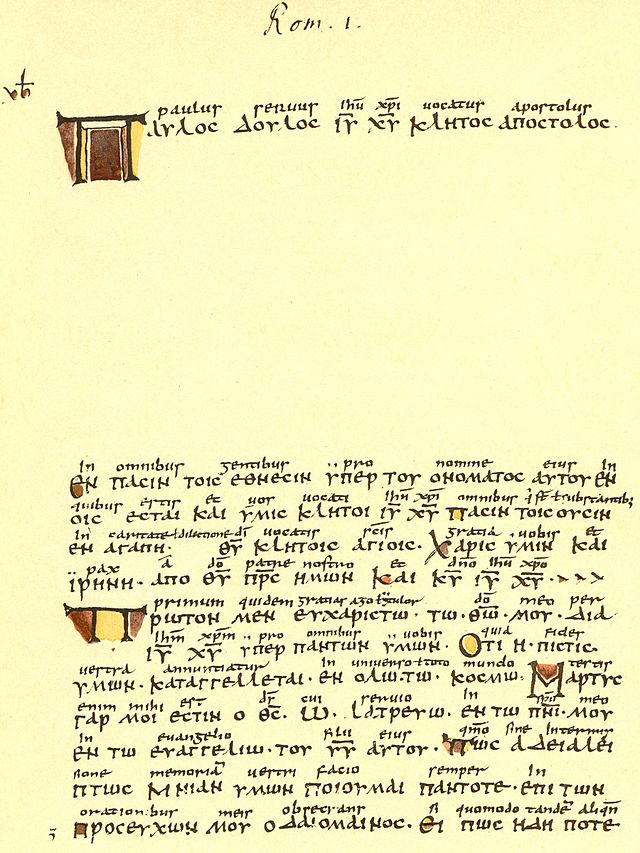 Rom. 1.
paulus seruus ihu xpi uocatus apostolus
ΠΑΥΛΟC ΔΟΥΛΟC ΙΥ ΧΥ ΚΛΗΤΟC ΑΠΟCΤΟΛΟC.
In omnibus gentibus pro nomine eius In
ΕΝ ΠΑCΙΝ ΤΟΙC ΕΘΝΕCΙΝ ΥΠΕΡ ΤΟΥ ΟΝΟΜΑΤΟC ΑΥΤΟΥ ΕΝ
quibus estis et uos uocati ihu xpi omnibus
ΟΙC ΕCΤΑΙ ΚΑΙ ΥΜΙC ΚΛΗΤΟΙ ΙΥ ΧΥ ΠΑCΙΝ ΤΟΙC ΟΥCΙΝ
In caritate dilectione di uocatis scis gratia uobis et
ΕΝ ΑΓΑΠΗ· ΘΥ ΚΛΗΤΟΙC ΑΓΙΟΙC. ΧΑΡΙC ΥΜΙΝ ΚΑΙ
pax a do patre nostro et dno ihu xpo
ΙΡΗΝΗ· ΑΠΟ ΘΥ ΠΡC ΗΜΩΝ ΚΑΙ ΚΥ ΙΥ ΧΥ·
primum quidem gratias ago do meo per
ΠΡΩΤΟΝ ΜΕΝ ΕΥΧΑΡΙCΤΩ· ΤΩ· ΘΩ· ΜΟΥ· ΔΙΑ
ihm xpm pro omnibus uobis quia fides
ΙΥ ΧΥ ΥΠΕΡ ΠΑΝΤΩΝ ΥΜΩΝ· ΟΤΙ Η· ΠΙCΤΙC
uestra annuntiatur In uniuerso toto mundo testis
ΥΜΩΝ· ΚΑΤΑΓΓΕΛΛΕΤΑΙ· ΕΝ ΟΛΩ· ΤΩ· ΚΟCΜΩ· ΜΑΡΤΥC
enim mihi est ds cui seruio In spu meo
ΓΑΡ ΜΟΙ ΕCΤΙΝ Ο ΘC· Ω· ΛΑΤΡΕΥΩ· ΕΝ ΤΩ ΠΝΙ· ΜΟΥ
In euangelio filii eius sine Intermis
ΕΝ ΤΩ ΕΥΑΓΓΕΛΙΩ· ΤΟΥ ΥΥ ΑΥΤΟΥ· ΠΩC ΑΔΕΙΑΛΕΙ
sione memoria uestri facio semper In
ΠΤΩC ΜΝΙΑΝ ΥΜΩΝ ΠΟΙΟΥΜΑΙ ΠΑΝΤΟΤΕ· ΕΠΙ ΤΩΝ
orationibus meis obsecrans quomodo tande
ΠΡΟCΕΥΧΩΝ ΜΟΥ Ο ΔΑΙΟΜΑΙΝΟC· ΕΙ ΠΩC ΗΔΗ ΠΟΤΕ